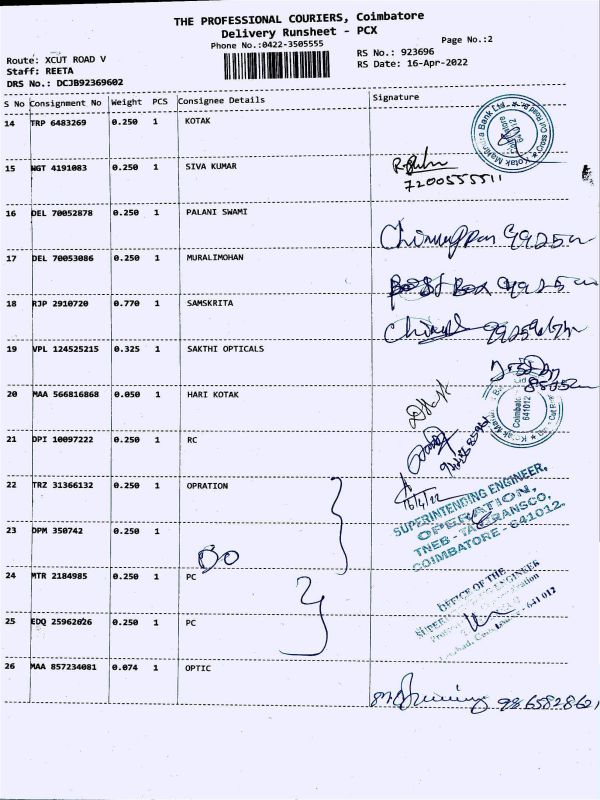 THE PROFESSIONAL COURIERS, Coimbatore
Delivery Runsheet - PCX
Phone No.:0422-3505555
Page No.:2
Route: XCUT ROAD V
RS No.: 923696
Staff: REETA
RS Date: 16-Apr-2022
DRS No.: DCJB92369602
S No Consignment No Weight PCS Consignee Details Signature
14 TRP 6483269 0.250 1 KOTAK
15 NGT 4191083 0.250 1 SIVA KUMAR
7200555511
16 DEL 70052878 0.250 1 PALANI SWAMI
17 DEL 70053086 0.250 1 MURALIMOHAN
18 RJP 2910720 0.770 1 SAMSKRITA
19 VPL 124525215 0.325 1 SAKTHI OPTICALS
20 MAA 566816868 0.050 1 HARI KOTAK
Coimbatore
641012
21 DPI 10097222 0.250 1 RC
22 TRZ 31366132 0.250 1 OPRATION
16/4/22
SUPERINTENDING ENGINEER,
OPERATION,
COIMBATORE - 641012.
23 DPM 350742 0.250 1
24 MTR 2184985 0.250 1 PC
OFFICE OF THE
25 EDQ 25962026 0.250 1 PC
26 MAA 857234081 0.074 1 OPTIC